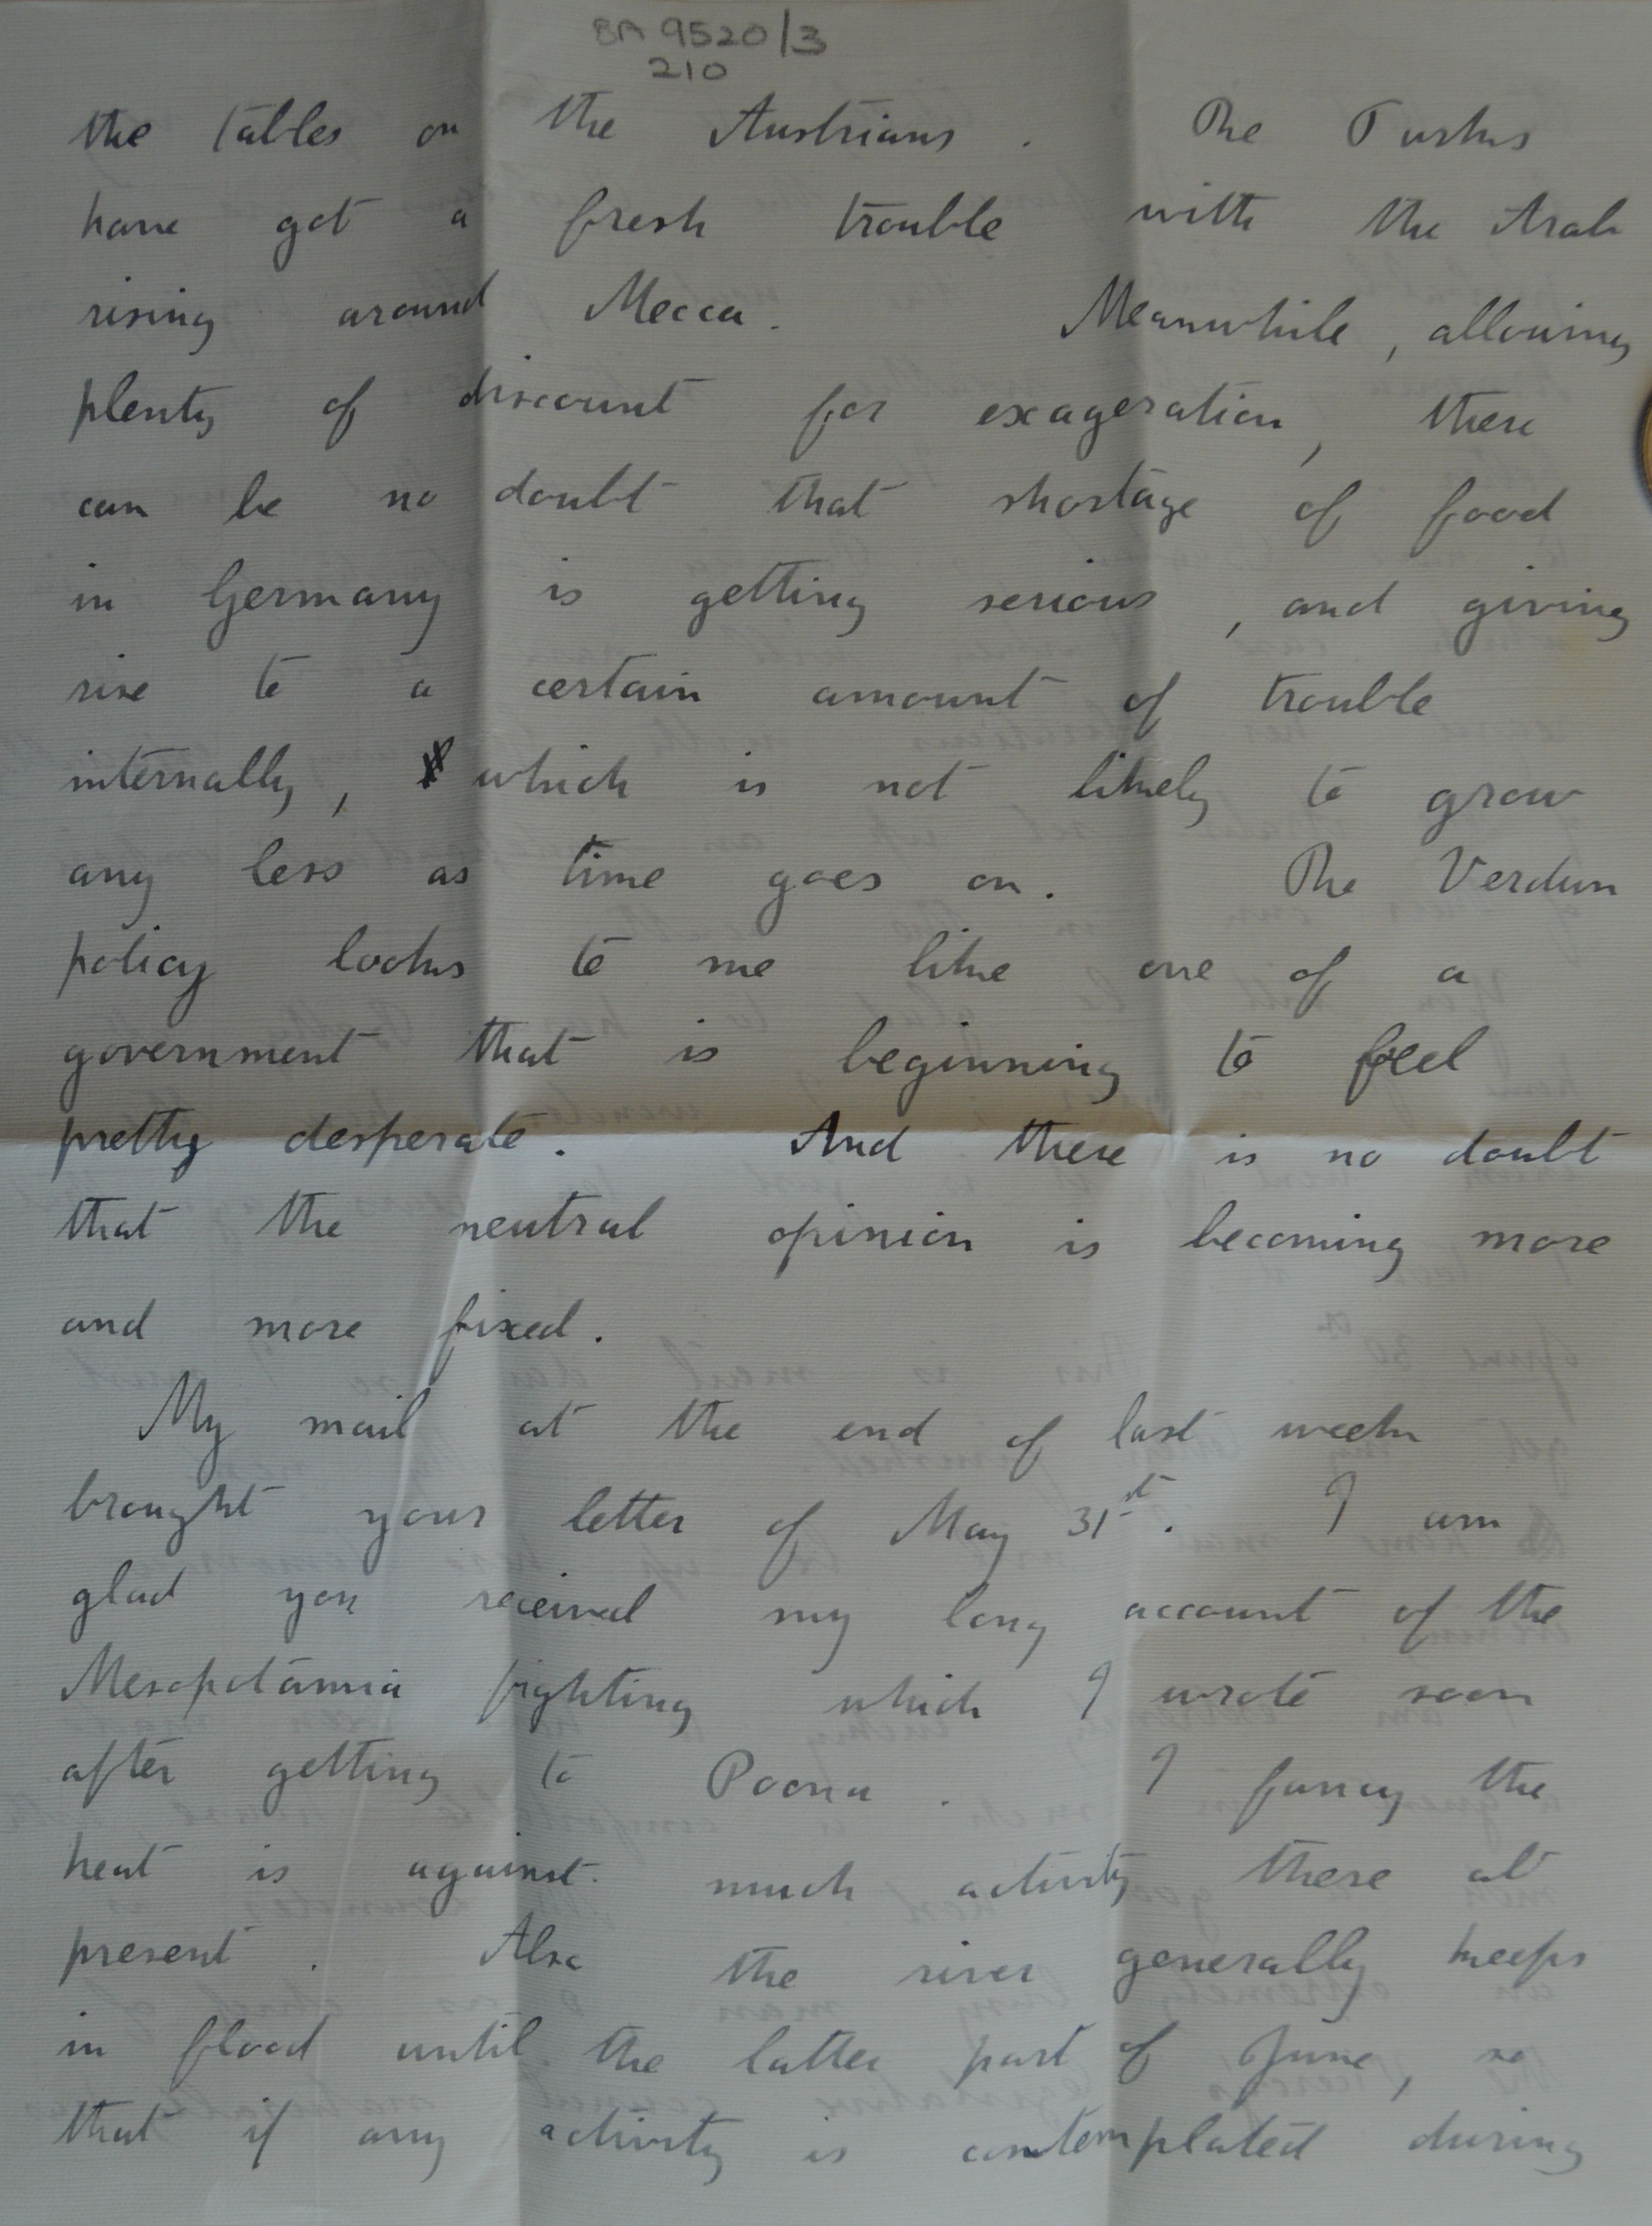 BA 9520/3
210
the tables on the Austrians. The Turks
have got a fresh trouble with the Arab
rising around Mecca. Meanwhile, allowing
plenty of discount for exageration, there
can be no doubt that shortage of food
in Germany is getting serious, and giving
rise to a certain amount of trouble
internally, which is not likely to grow
any less as time goes on. The Verdun
policy looks to me like one of a
government that is beginning to feel
pretty desperate. And there is no doubt
that the neutral opinion is becoming more
and more fixed.
My mail at the end of last week
brought your letter of May 31st. I am
glad you received my long account of the
Mesopotamia fighting which I wrote soon
after getting to Poona. I fancy the
heat is against much activity there at
present. Also the river generally keeps
in flood until the latter part of June, so
that if any activity is contemplated during